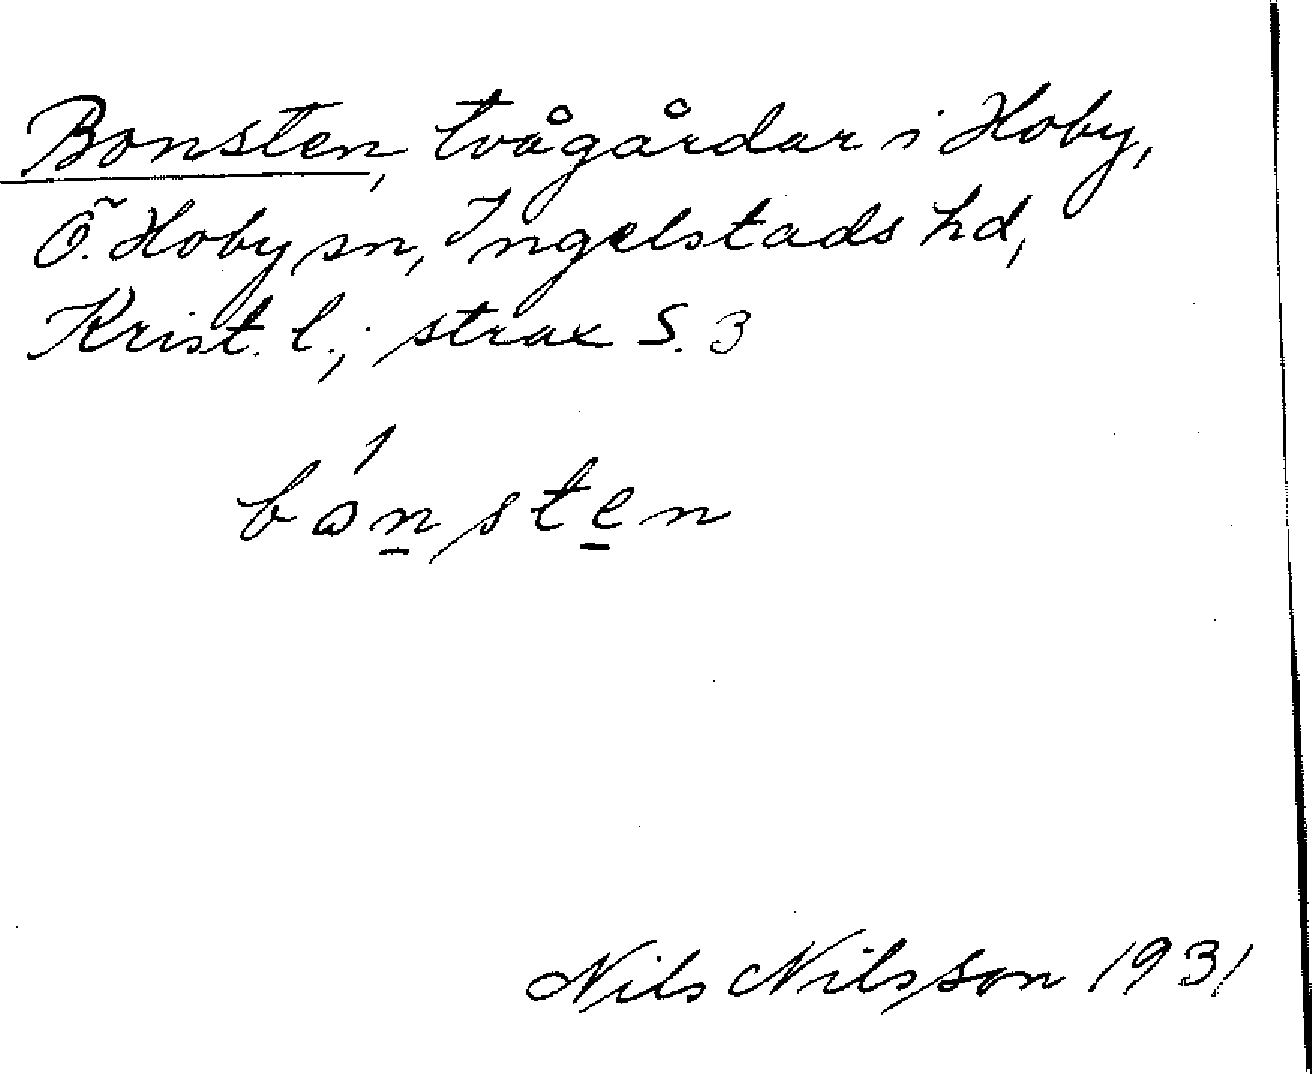 Bonsten, två gårdar i Hoby,
Ö. Hoby sn, Ingelstads hd,
Krist. l.; strax S. 3
bónsten
Nils Nilsson 1931